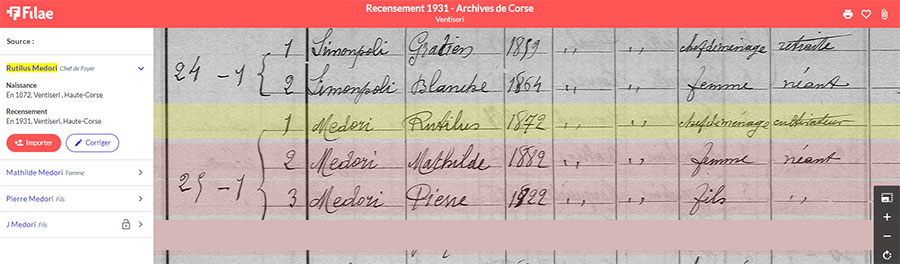 Filae
Recensement 1931 - Archives de Corse
Ventiseri
Source :
Rutilus Medori Chef de Foyer
Naissance
En 1872, Ventiseri , Haute-Corse
Recensement
En 1931, Ventiseri, Haute-Corse
Importer
Corriger
Mathilde Medori Femme
Pierre Medori Fils
J Medori Fils
24 - 1 { 1 Simonpoli Gratien 1859 ,, ,, chef de ménage retraité
2 Simonpoli Blanche 1864 ,, ,, femme néant
25 - 1 { 1 Medori Rutilus 1872 ,, ,, chef de ménage cultivateur
2 Medori Mathilde 1882 ,, ,, femme néant
3 Medori Pierre 1922 ,, ,, fils ,,